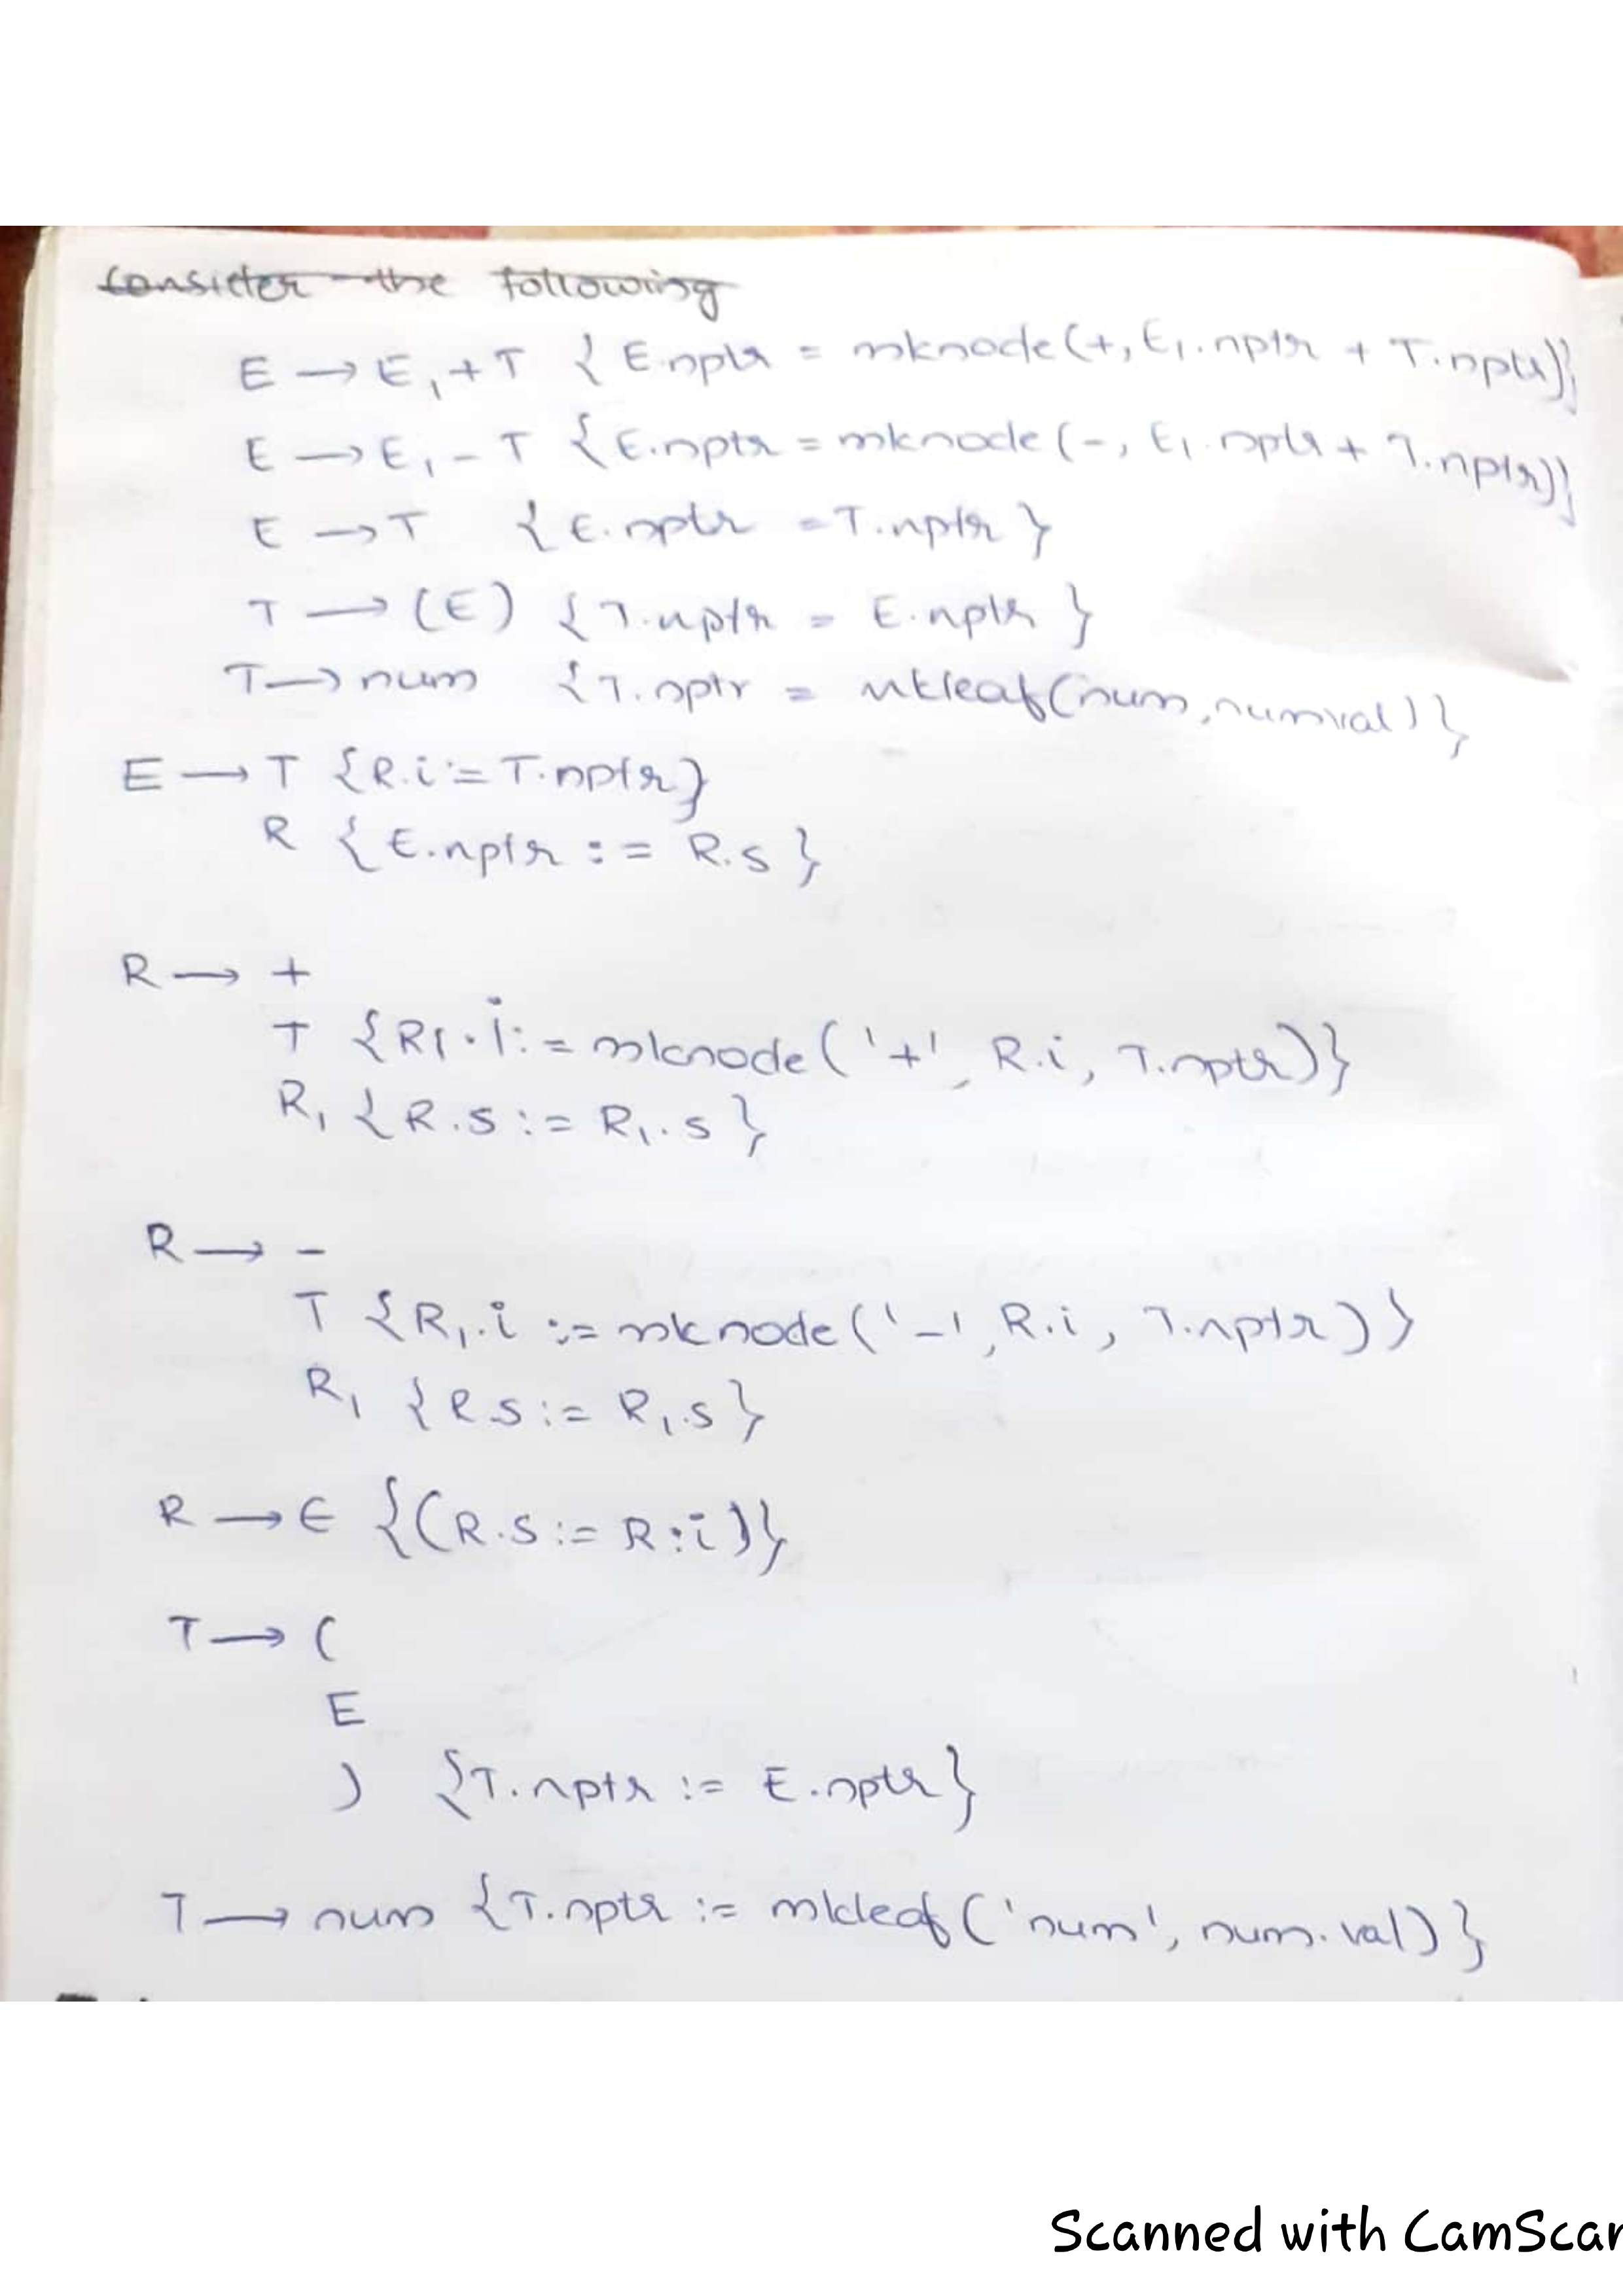 Consider the following
E → E₁ + T { E.nptr = mknode(+, E₁.nptr + T.nptr)}
E → E₁ - T {E.nptr = mknode(-, E₁.nptr + T.nptr)}
E → T { E.nptr = T.nptr }
T → (E) {T.nptr = E.nptr }
T → num {T.nptr = mkleaf(num, numval)}
E → T {R.i := T.nptr}
R {E.nptr := R.s}
R → +
T {R1.i := mknode('+', R.i, T.nptr)}
R₁ {R.s := R₁.s}
R → -
T {R₁.i := mknode('-', R.i, T.nptr)}
R₁ {R.s := R₁.s}
R → ∈ {(R.s := R.i)}
T → (
E
) {T.nptr := E.nptr}
T → num {T.nptr := mkleaf('num', num.val)}
Scanned with CamScan